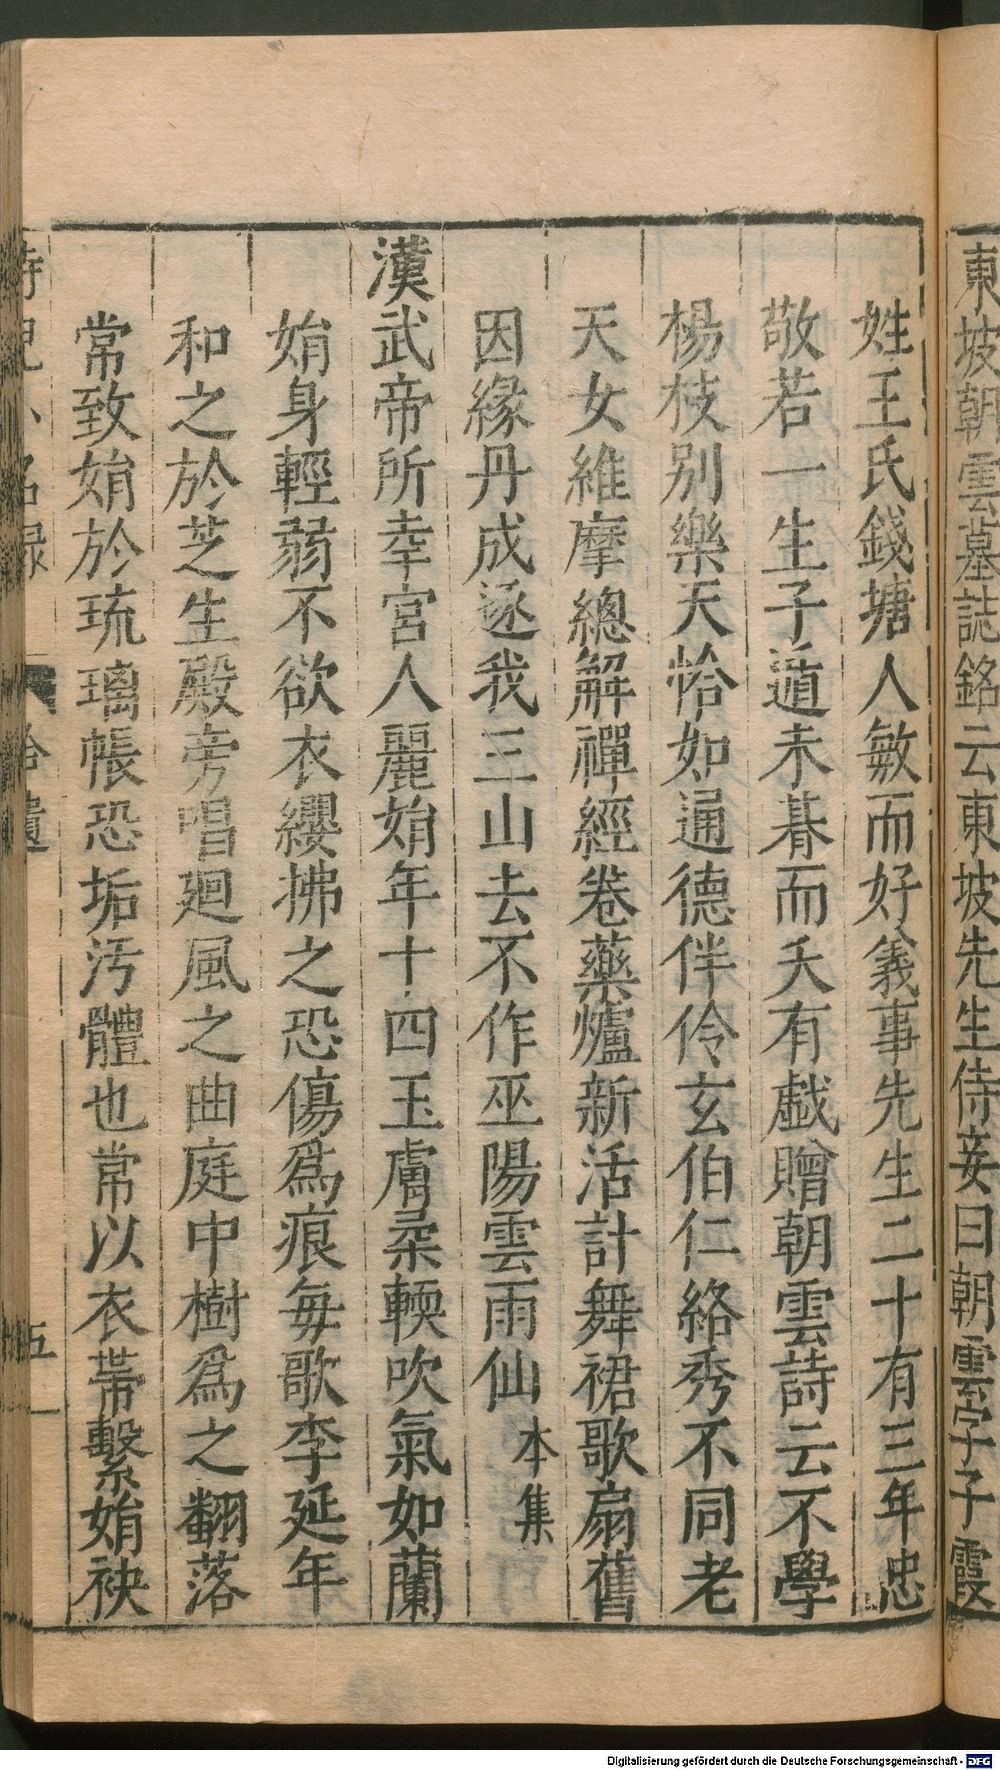 東坡朝雲墓誌銘云東坡先生侍妾曰朝雲字子霞
姓王氏錢塘人敏而好義事先生二十有三年忠
敬若一生子遁未朞而夭有戱贈朝雲詩云不學
楊枝别樂天恰如通德伴伶玄伯仁絡秀不同老
天女維摩總解禪經卷藥爐新活計舞裙歌扇舊
因緣丹成逐我三山去不作巫陽雲雨仙本集
漢武帝所幸宮人麗娟年十四玉膚柔輭吹氣如蘭
娟身輕弱不欲衣纓拂之恐傷爲痕每歌李延年
和之於芝生殿旁唱廻風之曲庭中樹爲之翻落
常致娟於琉璃帳恐垢汚體也常以衣帶繫娟袂
侍兒小名錄 拾遺 五
Digitalisierung gefördert durch die Deutsche Forschungsgemeinschaft - DFG